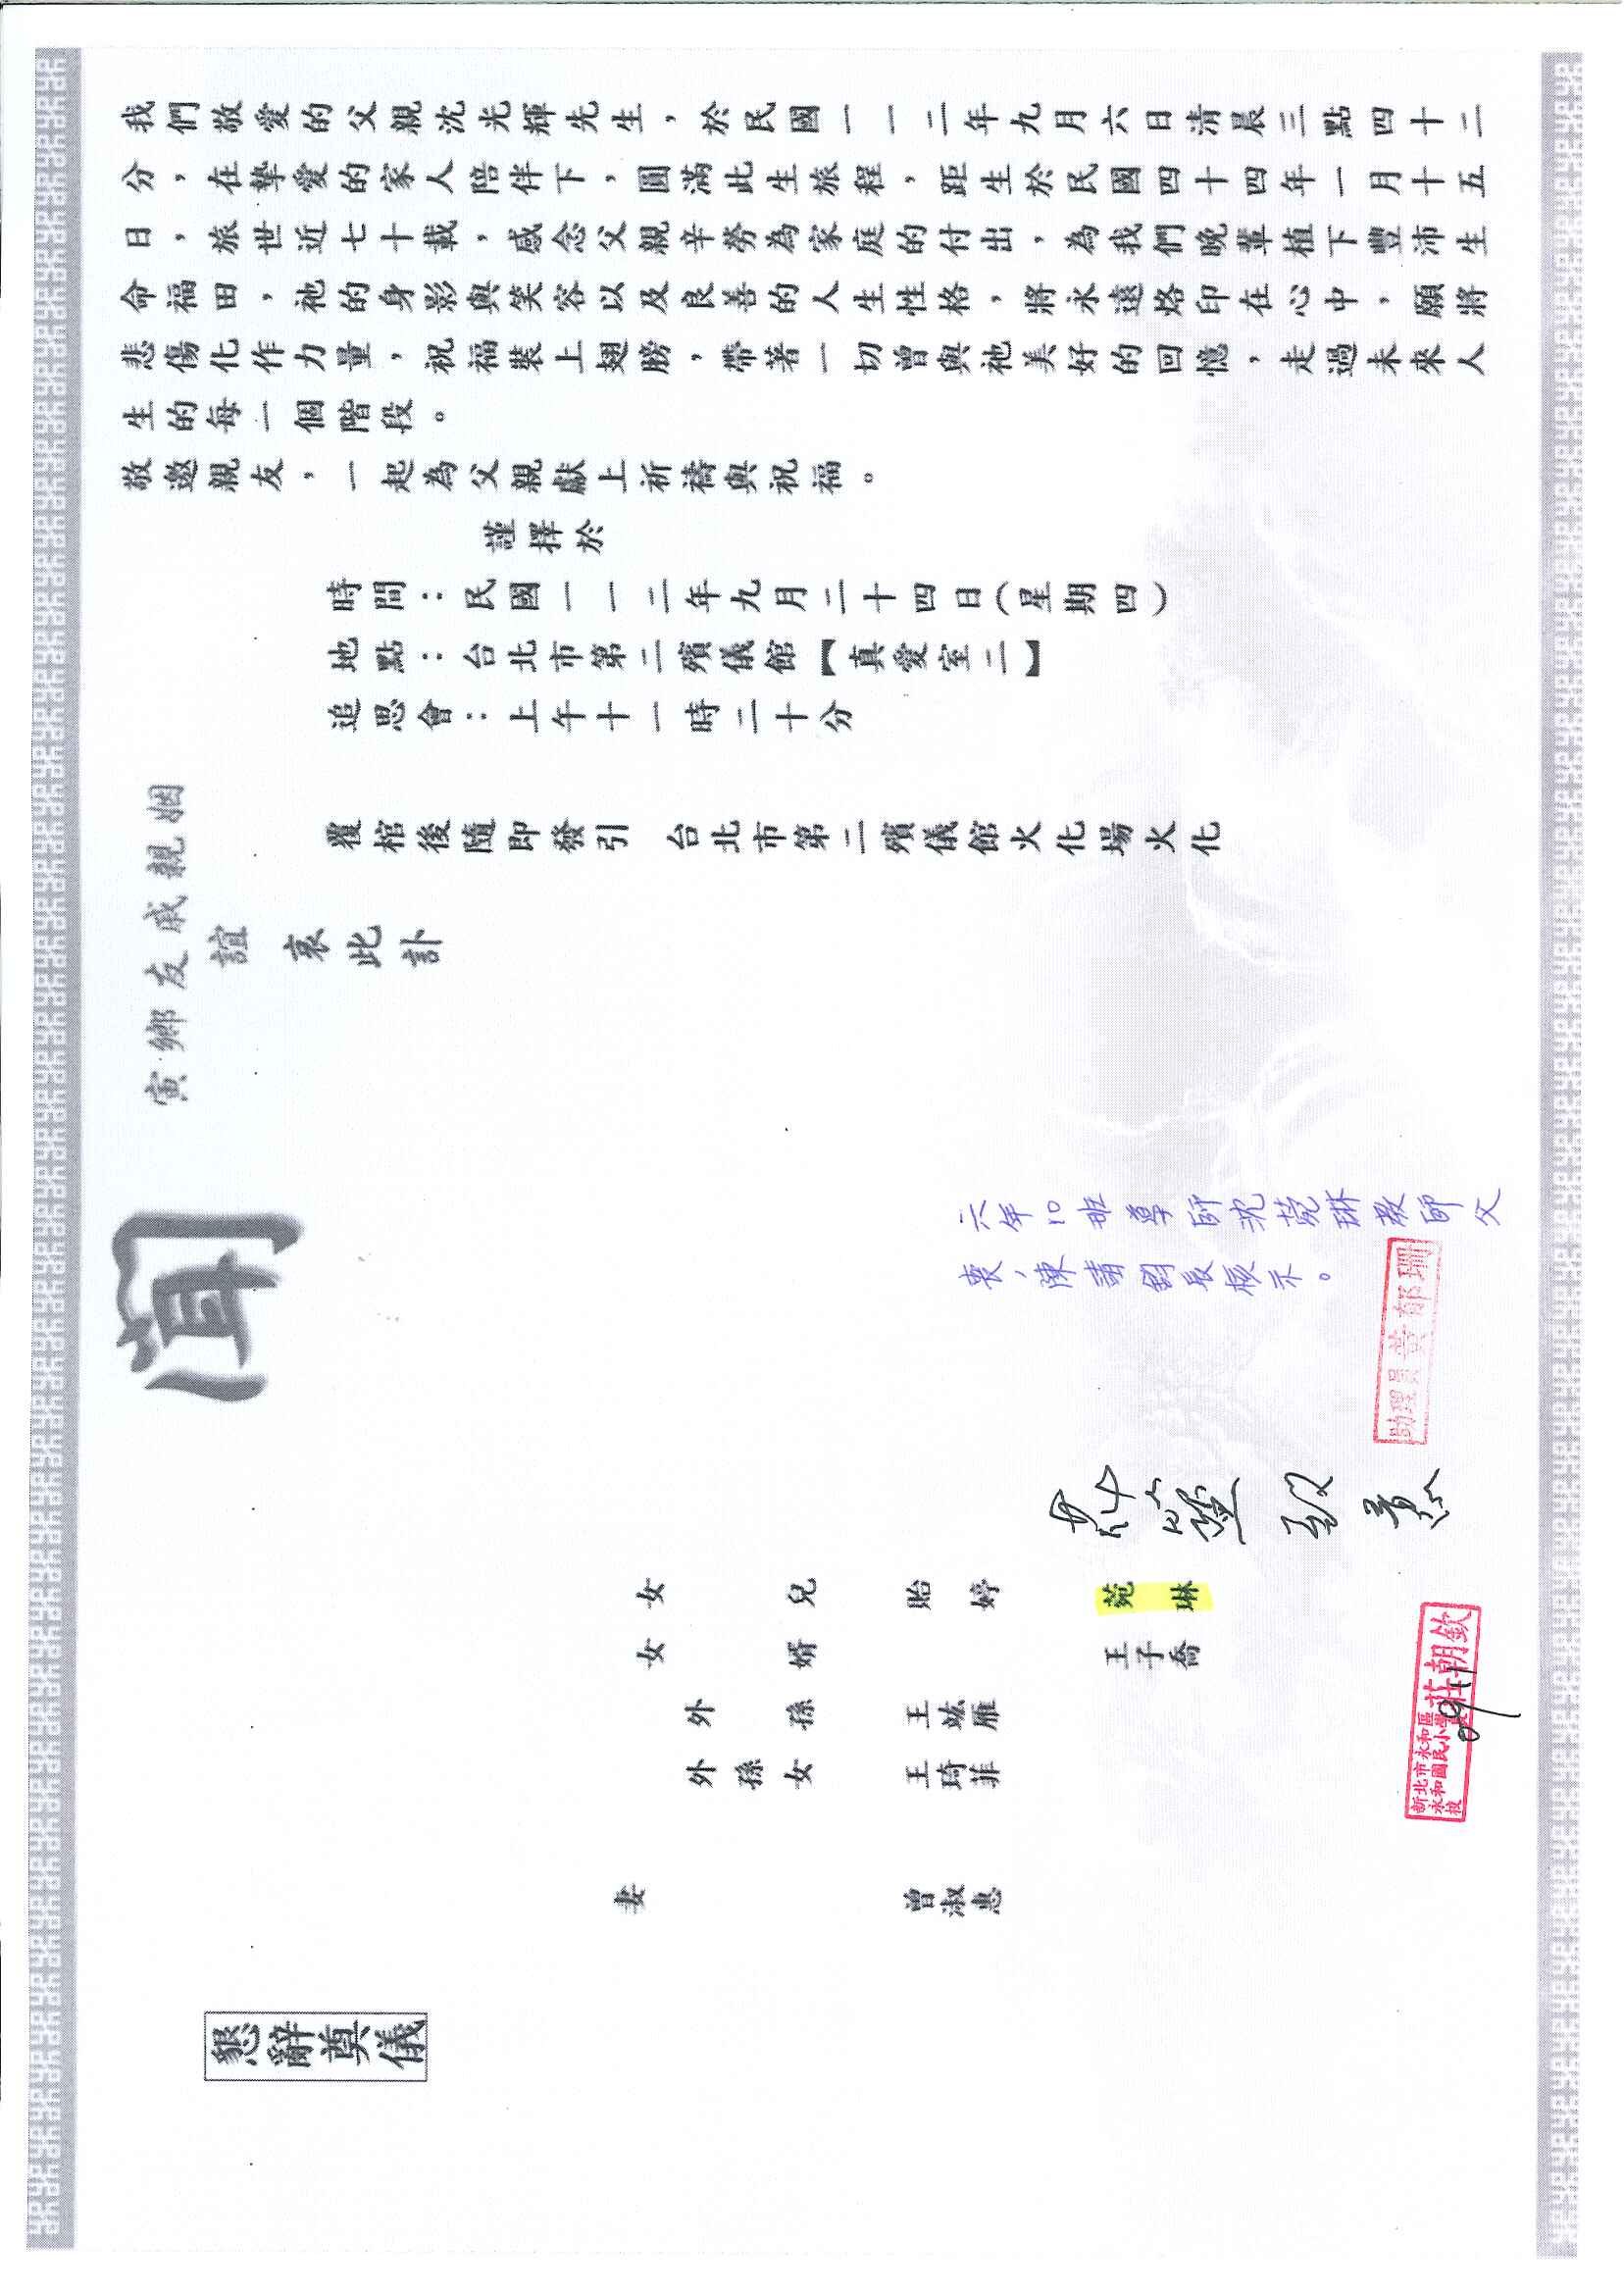 我們敬愛的父親沈光輝先生，於民國一一二年九月六日清晨三點四十二
分，在摯愛的家人陪伴下，圓滿此生旅程，距生於民國四十四年一月十五
日，旅世近七十載，感念父親辛勞為家庭的付出，為我們晚輩植下豐沛生
命福田，祂的身影與笑容以及良善的人生性格，將永遠烙印在心中，願將
悲傷化作力量，祝福裝上翅膀，帶著一切曾與祂美好的回憶，走過未來人
生的每一個階段。
敬邀親友，一起為父親獻上祈禱與祝福。
謹擇於
時間：民國一一二年九月二十四日（星期四）
地點：台北市第二殯儀館【真愛室二】
追思會：上午十一時二十分
覆棺後隨即發引 台北市第二殯儀館火化場火化
寅鄉友戚親姻
誼
哀此訃
聞
女兒 貽婷 菀琳
女婿 王子喬
外孫 王竑雁
外孫女 王琦菲
妻 曾淑惠
懇辭奠儀
六年10班導師沈菀琳教師父
喪，陳請鈞長核示。
助理員黃郁珊
致意
新北市永和區
永和國民小學
校長莊朝欽